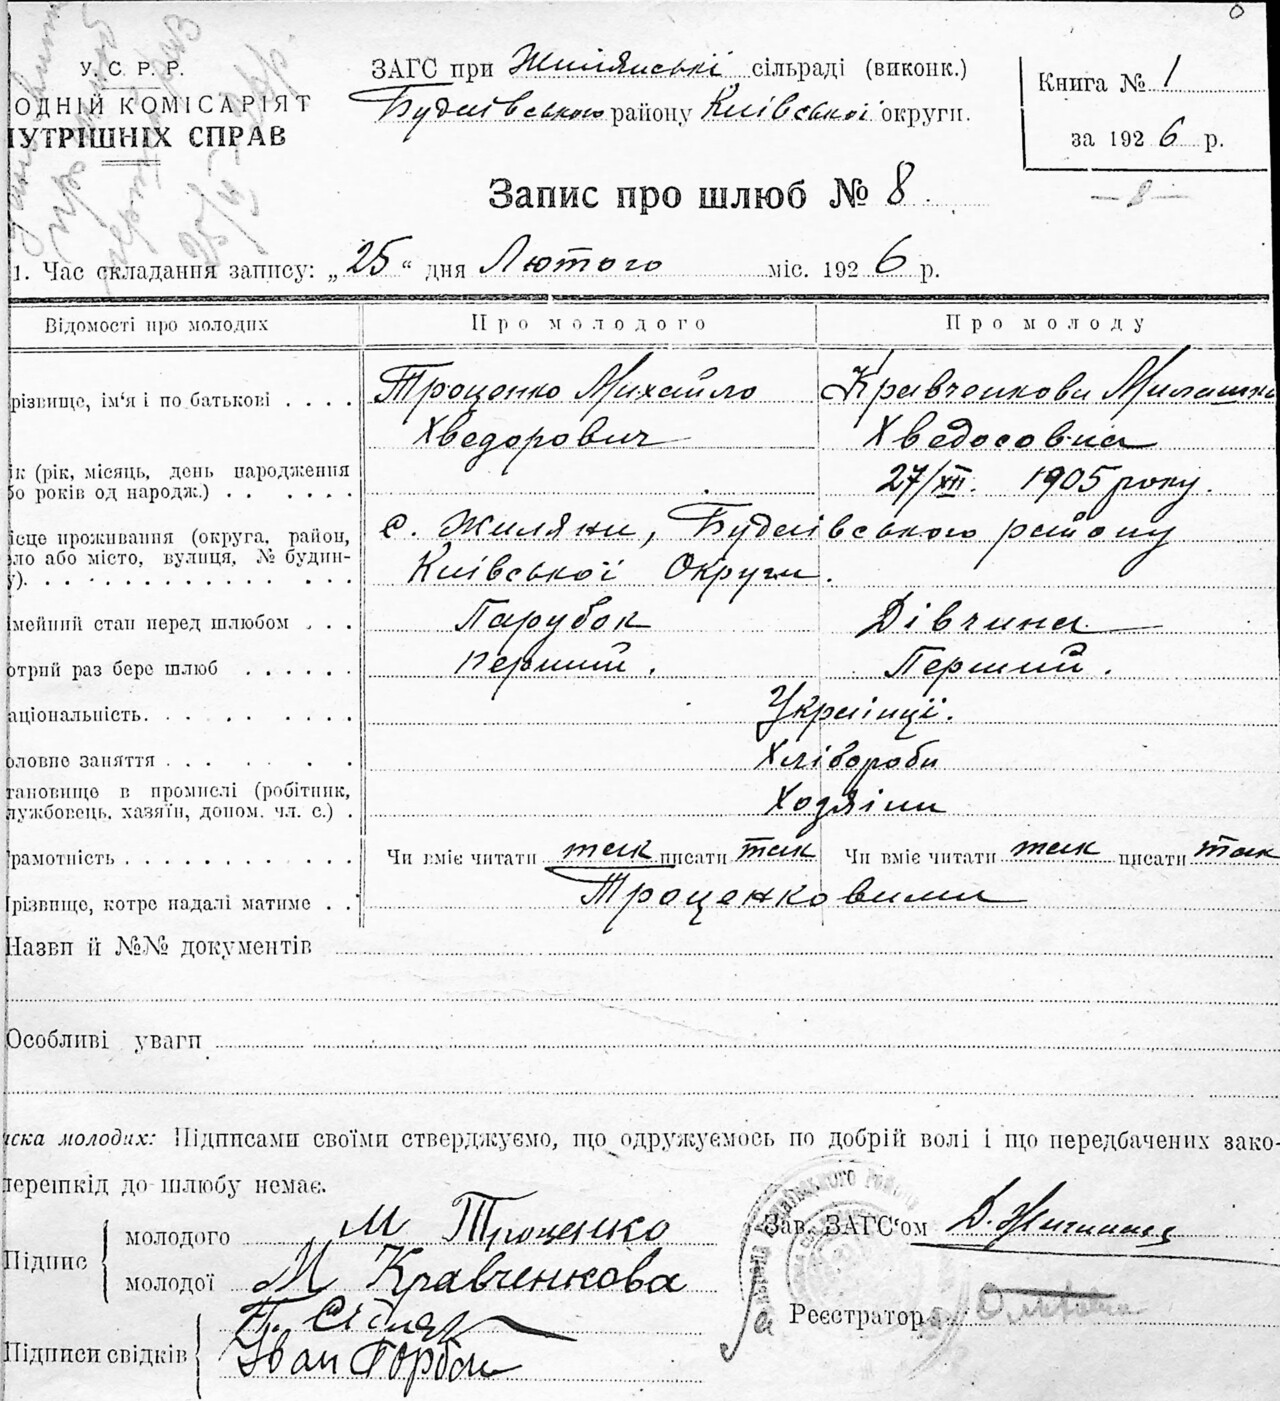 У. С. Р. Р.
ОДНІЙ КОМІСАРІЯТ
НУТРІШНІХ СПРАВ
ЗАГС при Жилянські сільраді (виконк.)
Будаївського району Київської округи.
Книга № 1
за 1926 р.
Запис про шлюб № 8
— 8 —
1. Час складання запису: „25“ дня Лютого міс. 1926 р.
Відомості про молодих Про молодого Про молоду
різвище, ім‘я і по батькові . . . . Троценко Михайло Кравченкова Милашка
Хведорович Хведосовна
ік (рік, місяць, день народження
бо років од народж.) . . . . . . 27/XII. 1905 року.
ісце проживання (округа, район, с. Жиляни, Будаївського району
ло або місто, вулиця, № будин-
у). . . . . . . . . . . . . . . Київської Округи.
імейний стан перед шлюбом . . . Парубок Дівчина
отрий раз бере шлюб . . . . . . перший. Перший.
аціональність. . . . . . . . . . Українці.
оловне заняття . . . . . . Хлібороби
тановище в промислі (робітник,
лужбовець, хазяїн, допом. чл. с.) . Хозяїни
рамотність . . . . . . . . . . . . Чи вміє читати так писати так Чи вміє читати так писати так
різвище, котре надалі матиме . . Троценковими
Назви й №№ документів
Особливі уваги
иска молодих: Підписами своїми стверджуємо, що одружуємось по добрій волі і що передбачених зако-
перешкід до шлюбу немає.
Підпис молодого М Троценко
молодої М Кравченкова
Зав. ЗАГС‘ом
Реєстратор
Підписи свідків
Іван Горбач